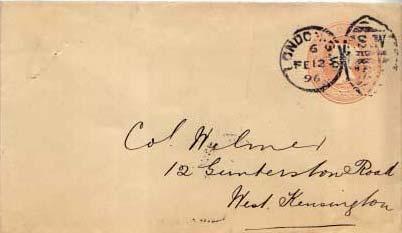 LONDON S.W
6
FE 12
96
Col. Wylmer
12 Gunterston Road
West Kensington